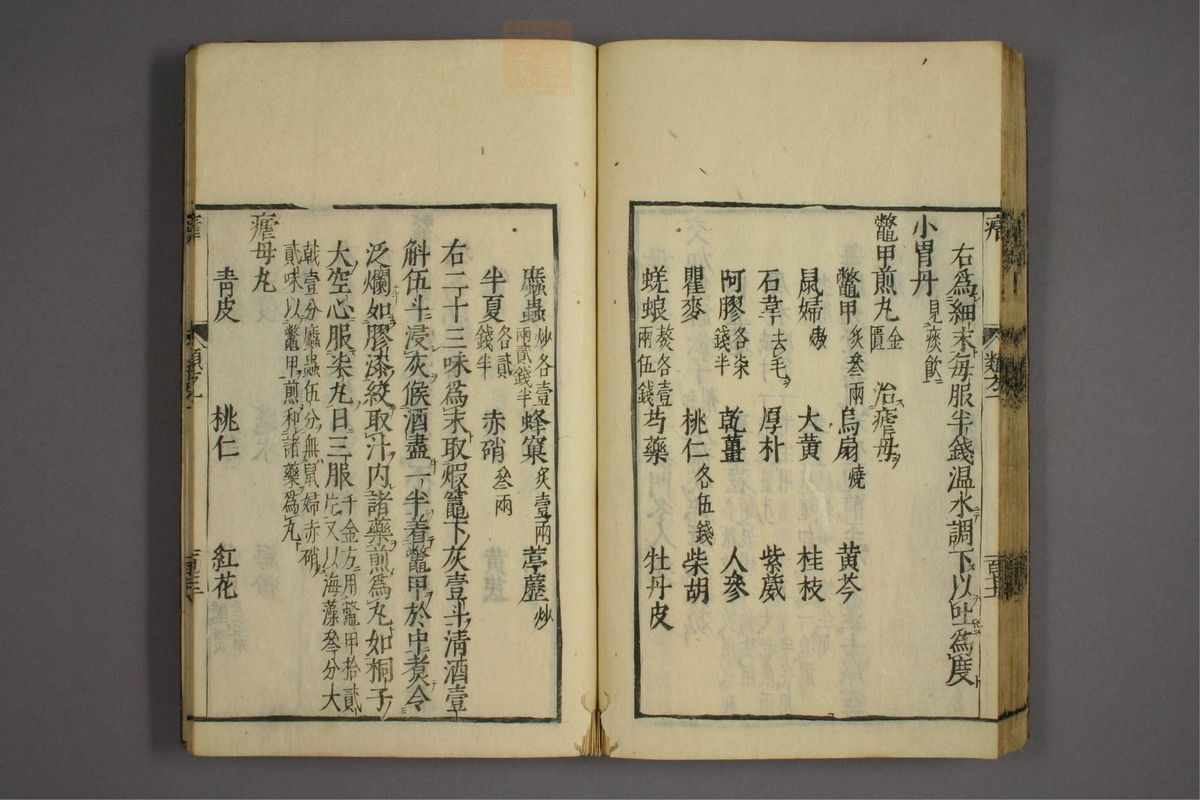 右爲細末毎服半錢温水調下以吐爲度
小胃丹 見痰飲
鼈甲煎丸 金匱 治瘧母
鼈甲 炙叄兩 烏扇 燒 黄芩
鼠婦 熬 大黄 桂枝
石韋 去毛 厚朴 紫葳
阿膠 各柒錢半 乾薑 人參
瞿麥 桃仁 各伍錢 柴胡
蜣蜋 熬各壹兩伍錢 芍藥 牡丹皮
䗪蟲 炒各壹兩貳錢半 蜂窠 炙壹兩 葶藶 炒
半夏 各貳錢半 赤硝 叄兩
右二十三味爲末取煆竈下灰壹斗清酒壹
斛伍斗浸灰候酒盡一半着鼈甲於中煮令
泛爛如膠漆絞取汁内諸藥煎爲丸如桐子
大空心服柒丸日三服 千金方用鼈甲拾貳片又以海藻叄分大
戟壹分䗪蟲伍分無鼠婦赤硝貳味以鼈甲煎和諸藥爲丸
瘧母丸
青皮 桃仁 紅花